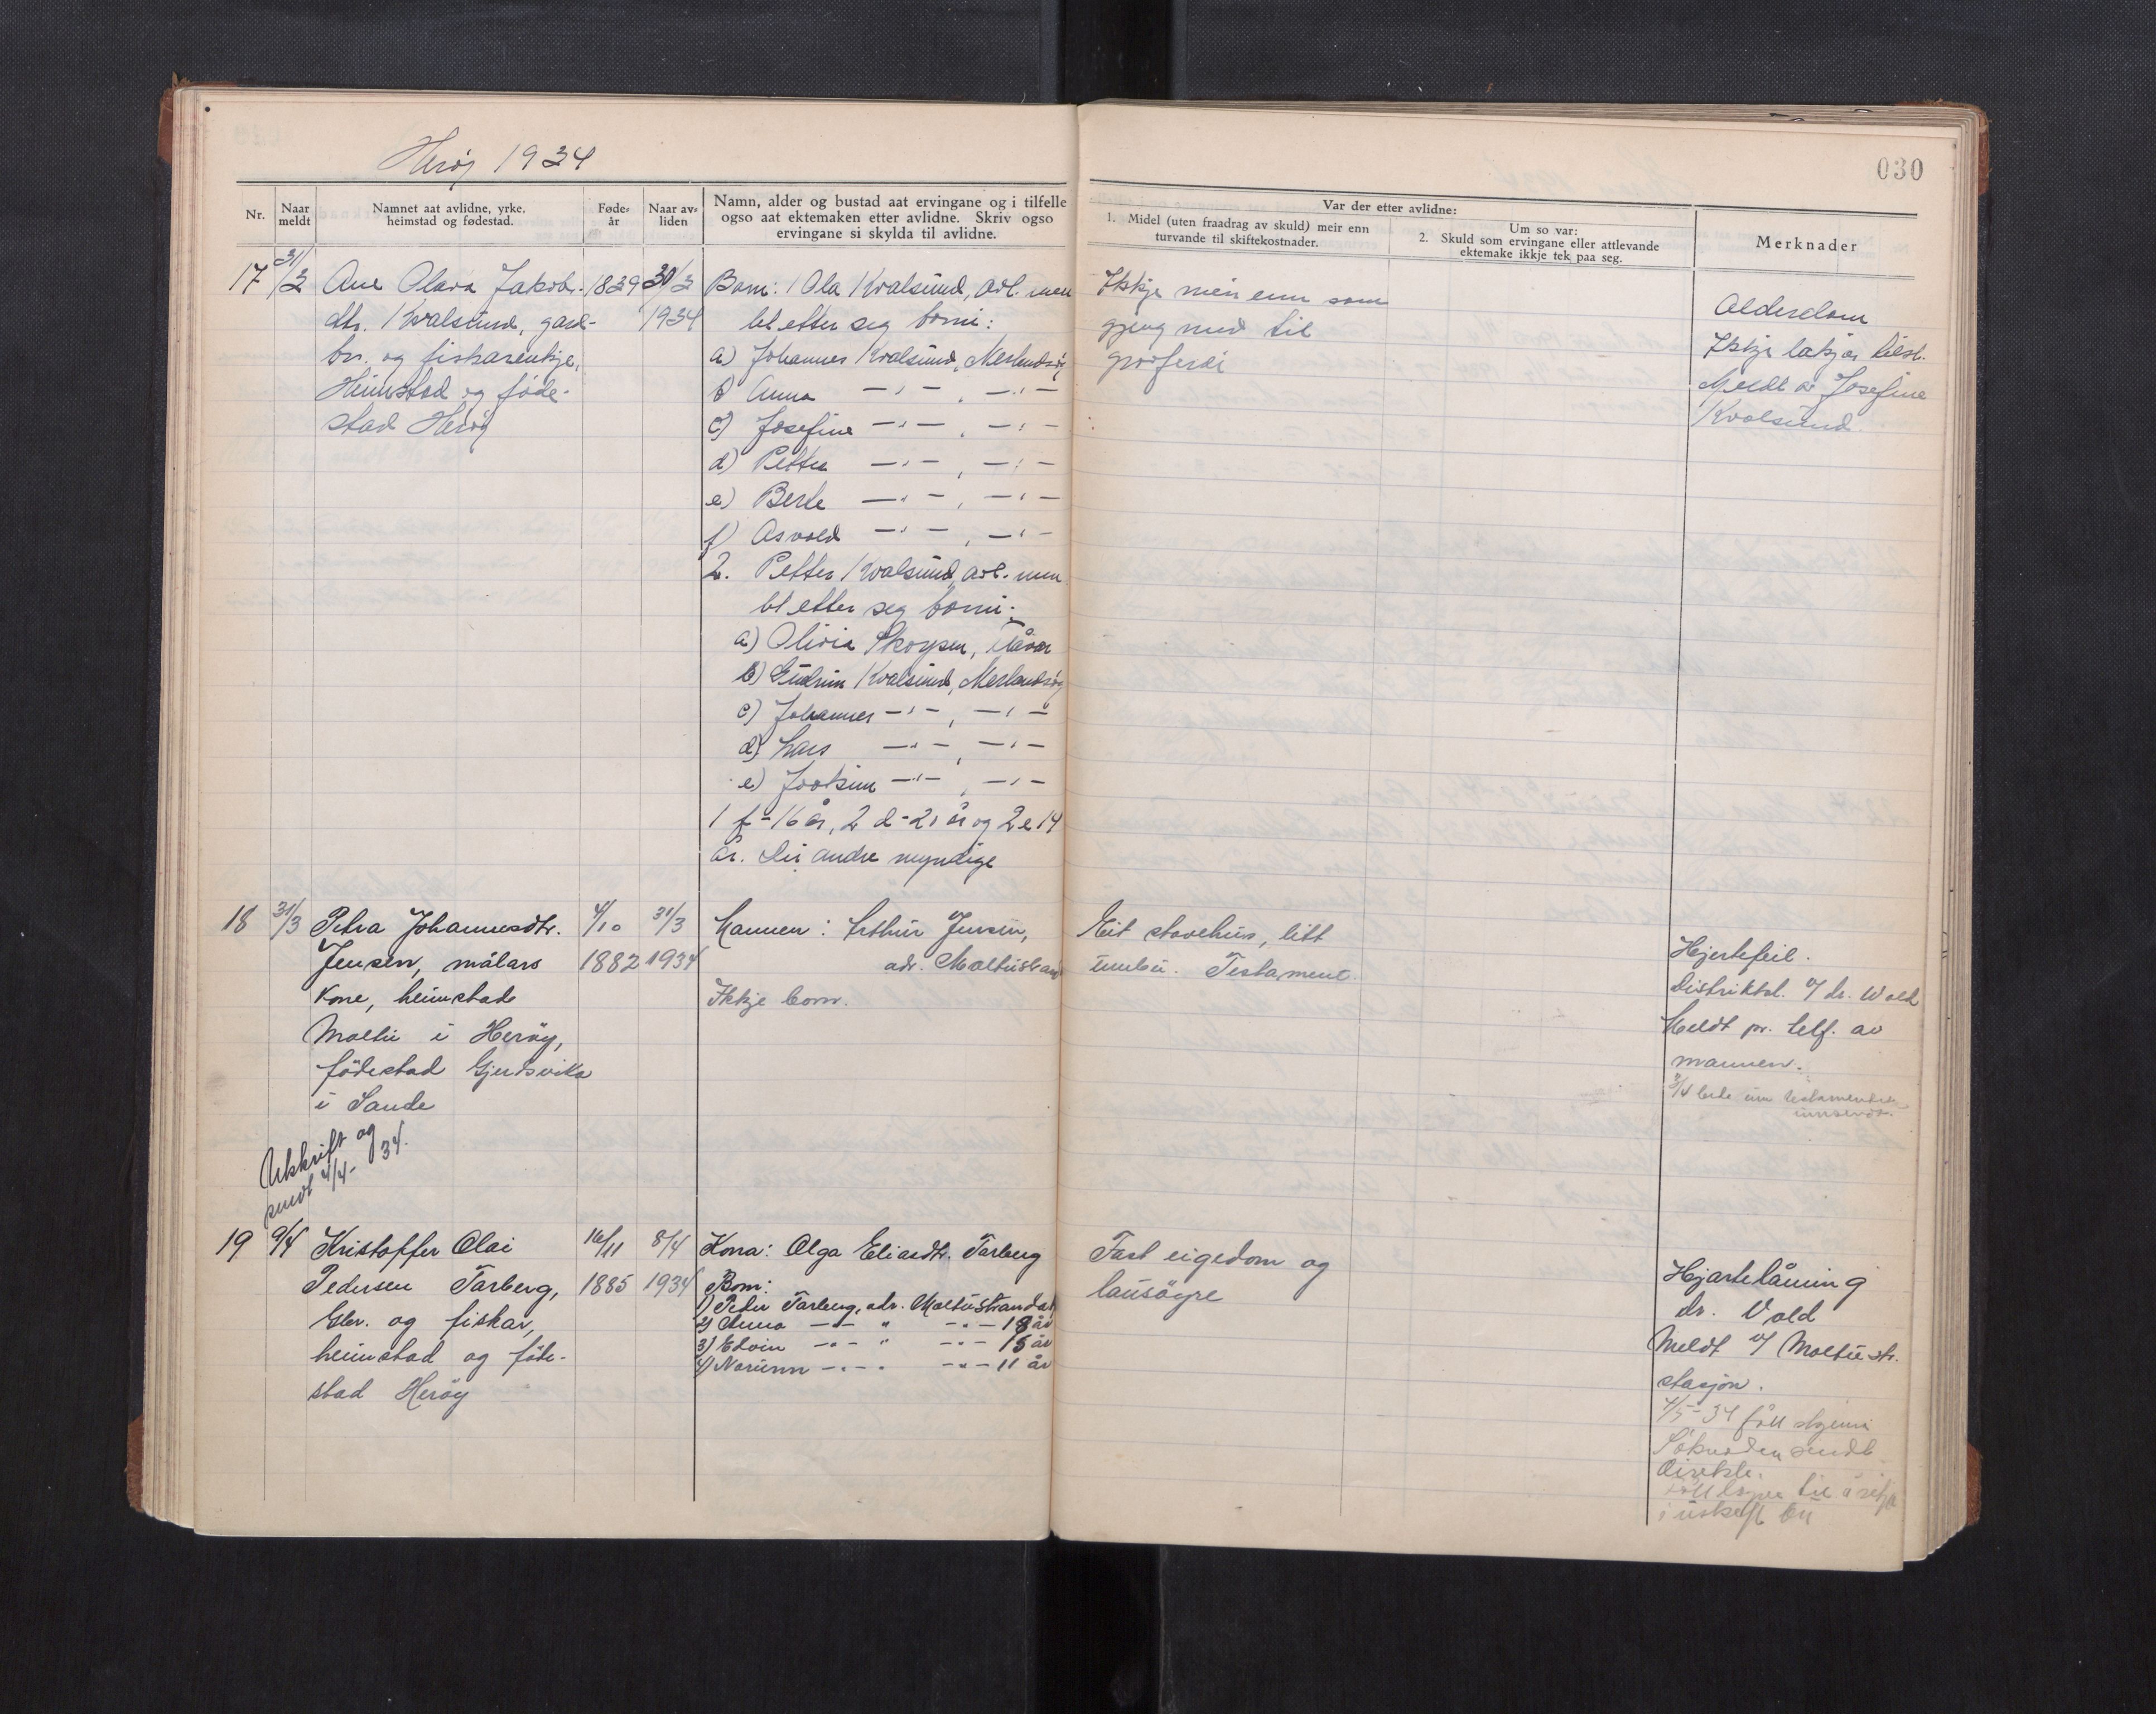 Herøy 1934
030
Nr.
Naar meldt
Namnet aat avlidne, yrke, heimstad og fødestad.
Føde-år
Naar av-liden
Namn, alder og bustad aat ervingane og i tilfelle
ogso aat ektemaken etter avlidne. Skriv ogso
ervingane si skylda til avlidne.
Var der etter avlidne:
1. Midel (uten fraadrag av skuld) meir enn
turvande til skiftekostnader.
Um so var:
2. Skuld som ervingane eller attlevande
ektemake ikkje tek paa seg.
Merknader
17 31/3 Ane Olava Jakobs- 1839 30/3
dtr. Kvalsund, gard- 1934
br. og fiskarenkje,
Heimstad og føde-
stad Herøy
Born: 1 Ola Kvalsund, avl. men
let etter seg borni:
a) Johannes Kvalsund, Merlandsøy
b) Anna —"— , —"—
c) Josefine —"— , —"—
d) Petter —"— , —"—
e) Berte —"— , —"—
f) Asvald —"— , —"—
2. Petter Kvalsund, avl. men
let etter seg borni:
a) Olivia Skorpen,
b) Gudrun Kvalsund, Merlandsøy
c) Johannes —"— , —"—
d) Lars —"— , —"—
e) Joakim —"— , —"—
1 f - 16 år, 2 d - 21 år og 2 e 14
år. Dei andre myndige
Ikkje meir enn som
gjeng med til
gravferdi
Alderdom
Ikkje lækjar tilst.
Meldt av Josefine
Kvalsund.
18 31/3 Petra Johannesdtr. 4/10 31/3
Jensen, målars 1882 1934
kone, heimstad
Moltu i Herøy,
fødestad Gjerdsvika
i Sande
Mannen: Arthur Jensen,
adr. Moltustrand
Ikkje born.
Eit stovehus, litt
innbu. Testament.
Hjertefeil.
Distriktsl. v/ dr. Wold
Meldt pr. telf. av
mannen.
3/4 bede um testamentet
innsendt.
Utskrift og
sendt 4/4- 34.
19 9/4 Kristoffer Olai 16/11 8/4
Pedersen Tarberg, 1885 1934
Gbr. og fiskar,
heimstad og føde-
stad Herøy
Kona: Olga Eliasdtr. Tarberg
Born:
1) Peder Tarberg, adr. Moltustranda
2) Anna —"— " —"— 18 år
3) Edvin —"— " —"— 15 år
4) Norunn —"— " —"— 11 år
Fast eigedom og
lausøyre
Hjartelåming
dr. Vold
Meldt v/ Moltustr.
stasjon.
4/5 - 34 fått skjema
Søknaden sendt
direkte.
til å sitja
i uskift bu